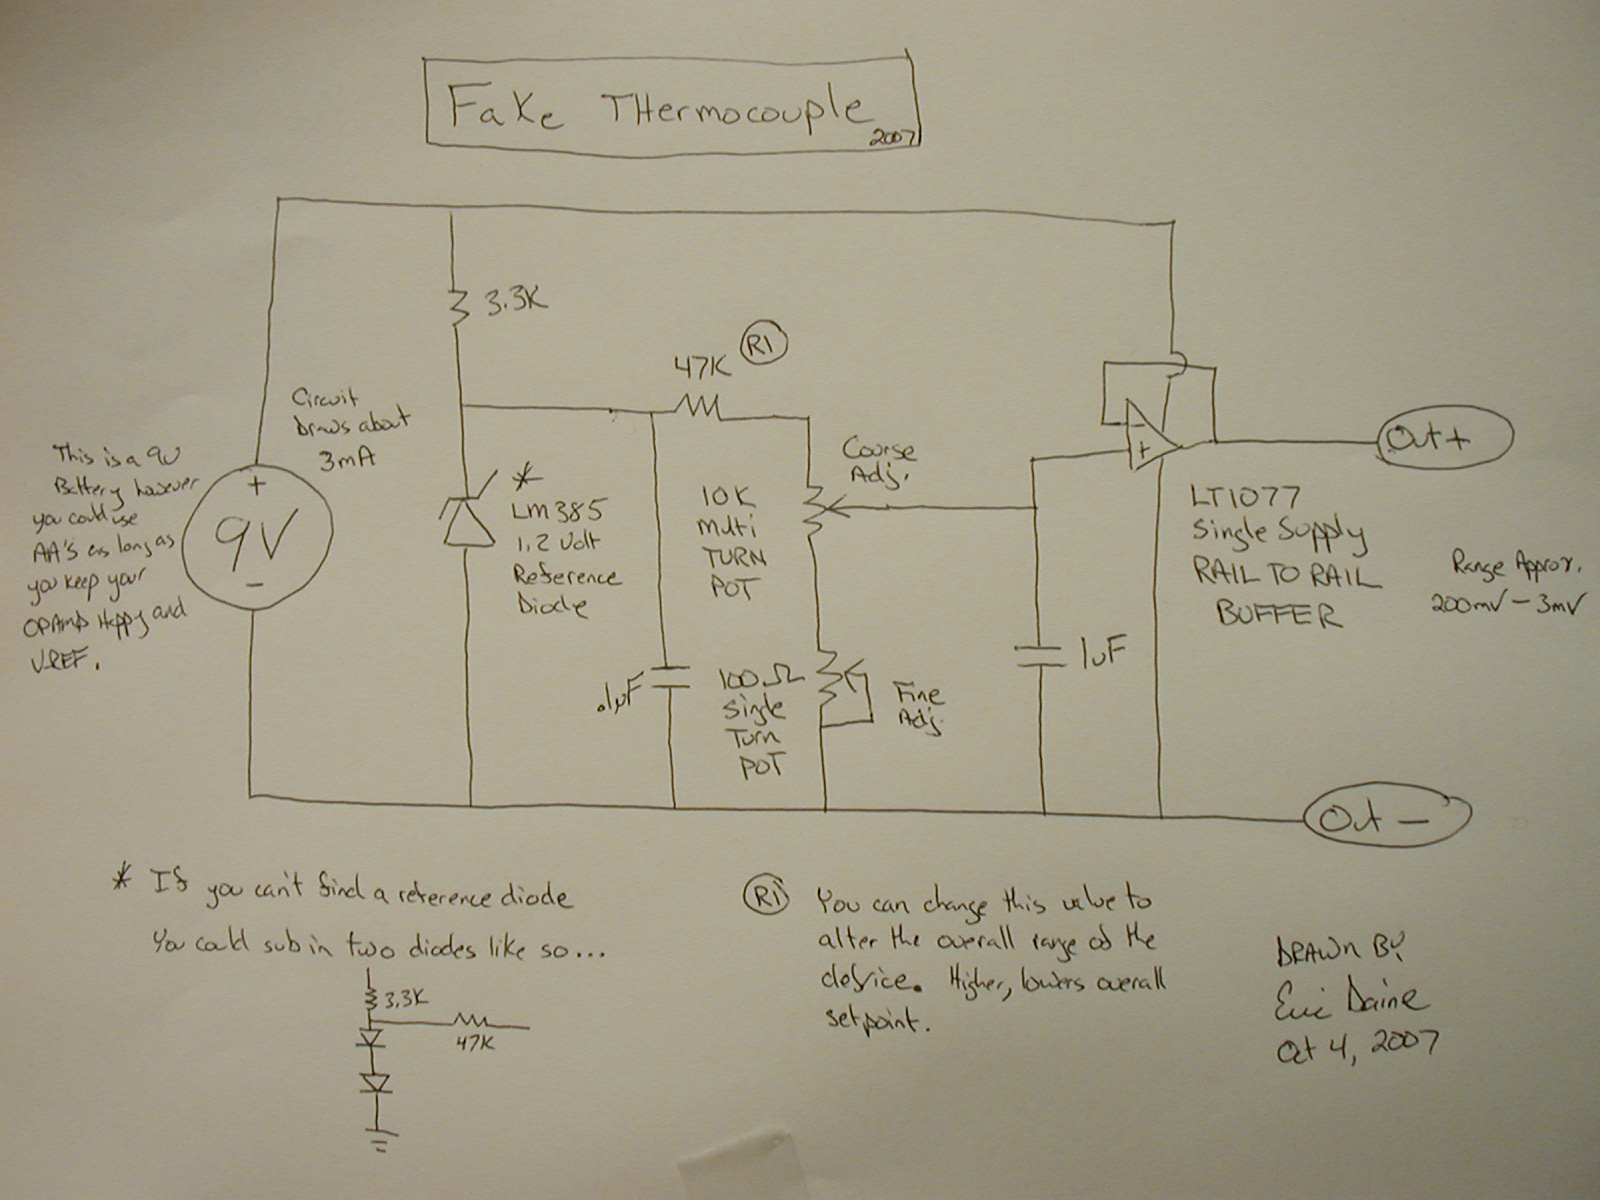 Fake Thermocouple
2007
3.3K
47K
R1
Circuit
Draws about
3mA
This is a 9V
Battery however
you could use
AA's as long as
you keep your
OPAmp Happy and
VREF.
+
9V
-
*
LM385
1.2 Volt
Reference
Diode
10K
Multi
TURN
POT
Course
Adj.
.1uF
100Ω
Single
Turn
POT
Fine
Adj.
1uF
-
+
Out +
LT1077
Single Supply
RAIL TO RAIL
BUFFER
Range Approx.
200mV - 3mV
Out -
* If you can't find a reference diode
You could sub in two diodes like so...
3.3K
47K
R1 You can change this value to
alter the overall range of the
device. Higher, lowers overall
setpoint.
DRAWN BY
Eric Daine
Oct 4, 2007